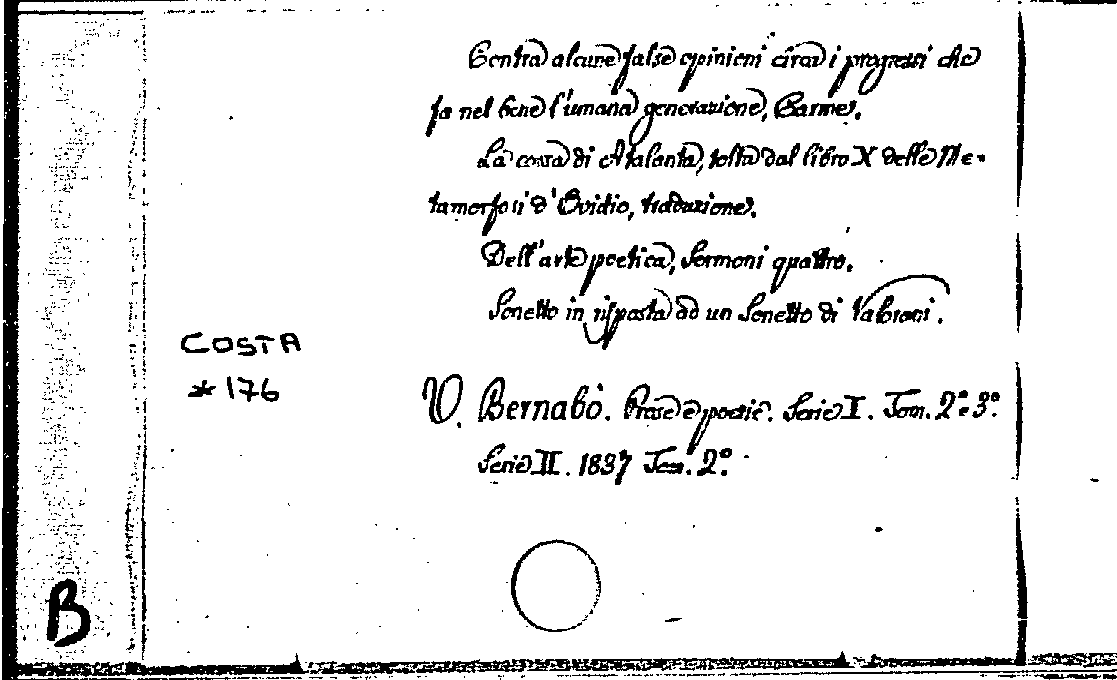 Contra alcune false opinioni circa i progressi che
fa nel bene l'umana generazione, Carme.
La corsa di Atalanta, tolta dal libro X delle Me-
tamorfosi d'Ovidio, traduzione.
Dell'arte poetica, Sermoni quattro.
Sonetto in risposta ad un Sonetto di Valorani.
COSTA
*176
V. Bernabò. Prose e poesie. Serie I. Tom. 2° e 3°.
Serie II. 1837 Tom. 2°.
B